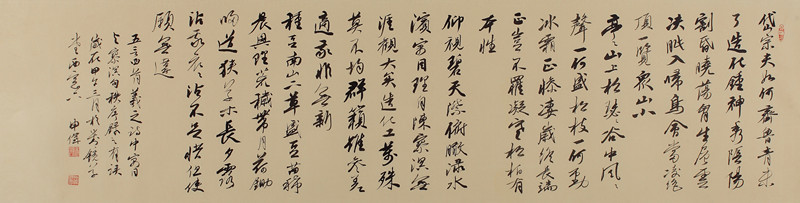 岱宗夫如何齊魯青未
了造化鍾神秀陰陽
割昏曉蕩胸生層雲
決眦入歸鳥會當凌絕
頂一覽衆山小
亭々山上松瑟々谷中風々
聲一何盛松枝一何勁
冰霜正慘凄歲終長端
正豈不羅凝寒松柏有
本性
仰視碧天際俯瞰淥水
濱寄目理自陳寥溟無
涯觀大矣造化工萬殊
莫不均群籟雖參差
適我非無新
種豆南山下草盛豆苗稀
晨興理荒穢帶月荷鋤
歸道狹草木長夕露
沾我衣々沾不足惜但使
願無違
五言四首羲之詩中寄目
與寥溟句秩序錄之有誤
歲在甲午三月於
西窗下